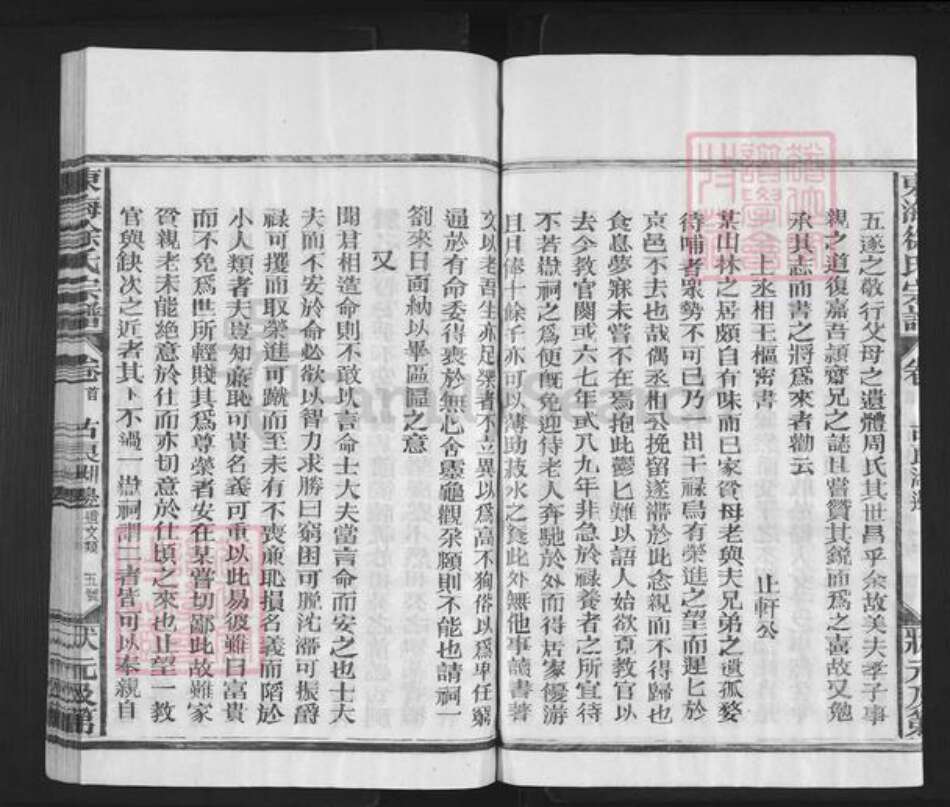 五遂之敬行父母之遺體周氏其世昌乎余故美夫季子事
親之道復嘉吾頴齋兄之誌且嘗贊其銳而爲之喜故又勉
承其志而書之將爲來者勸云
上丞相王樞密書
止軒公
某山林之居頗自有味而已家貧母老與夫兄弟之遺孤嫠
待哺者眾勢不可已乃出干祿烏有榮進之望而遲匕於
京邑不去也哉偶丞相公挽留遂滯於此念親而不得歸也
食息夢寐未嘗不在焉抱此鬱匕難以語人始欲覓教官以
去今教官闕或六七年或八九年非急於祿養者之所宜待
不若嶽祠之爲便旣免迎侍老人奔馳於外而得居家優游
且月俸十餘千亦可以薄助菽水之養此外無他事讀書著
文以老吾生亦足樂者不立異以爲高不狥俗以爲卑任窮
通於有命委得喪於無心舍靈龜觀朶頤則不能也請祠一
劄來日面納以畢區區之意
又
聞君相造命則不敢以言命士大夫當言命而安之也士大
夫而不安於命必欲以智力求勝曰窮困可脫沈滯可振爵
祿可攫而取榮進可蹴而至未有不喪廉恥損名義而陷於
小人類者夫豈知廉恥可貴名義可重以此易彼雖曰富貴
而不免爲世所輕賤其爲尊榮者安在某嘗切鄙此故雖家
貧親老未能絶意於仕而亦切意於仕頃之來也止望一教
官與缺次之近者其下不過一嶽祠謂二者皆可以奉親自
東海徐氏宗譜
卷首
古良淵學
遺文類
五號
狀元及第